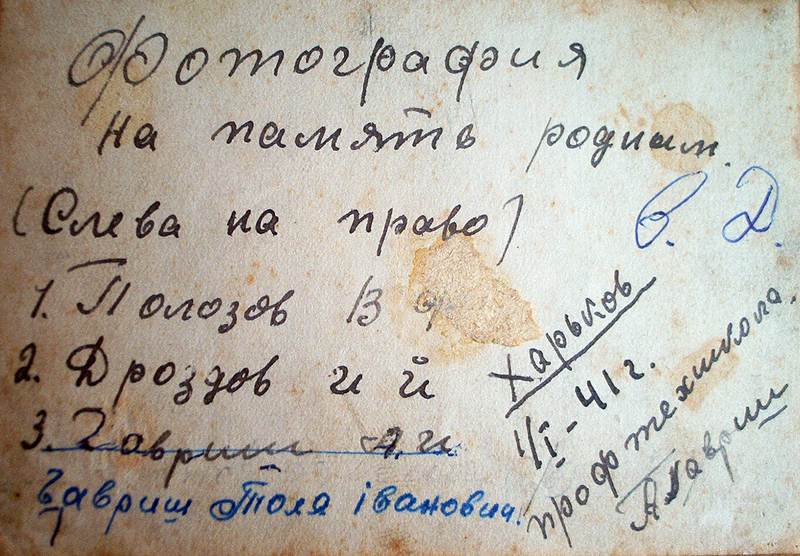 Фотография
на память родным.
(Слева на право)
В. Д.
1. Полозов В Ф
2. Дроздов И И
3. Гавриш А. И
Гавриш Толя Іванович.
Харьков
1/I-41 г.
профтехшкола.
А Гавриш